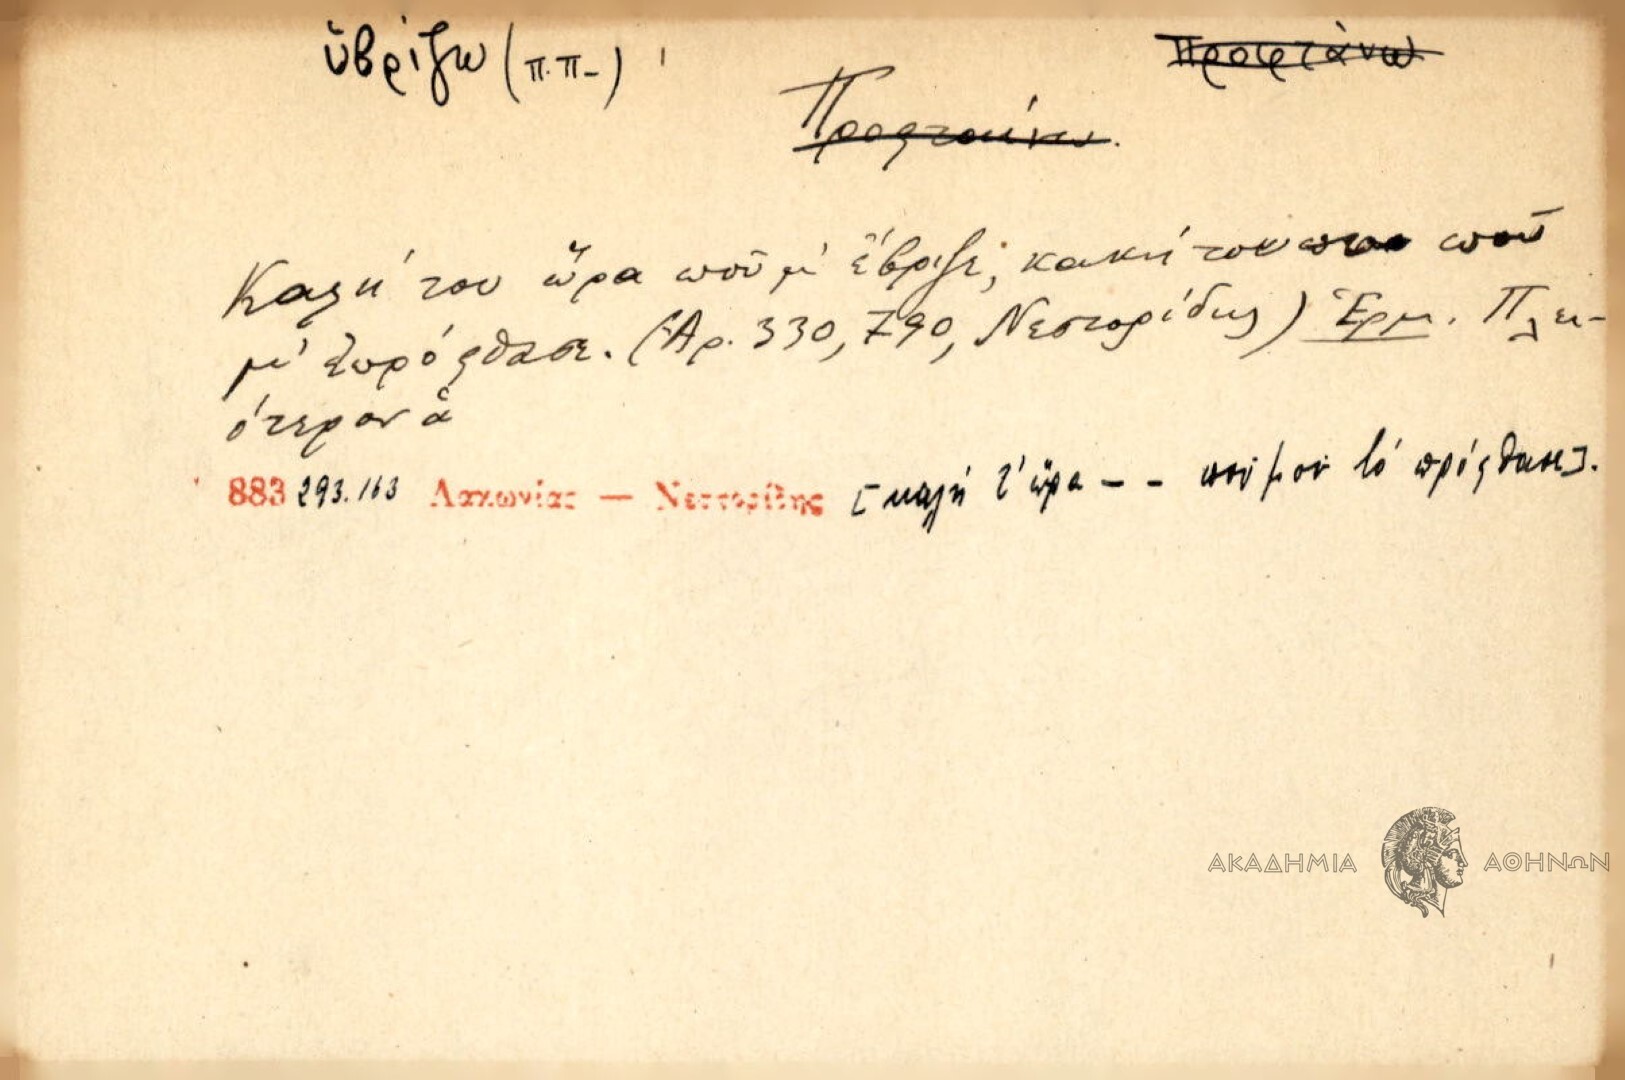 ὑβρίζω (π.π-)
προφτάνω
Προφταίνω.
Καλή του ὥρα ποῦ μ' ἔβριξε, κακή του ποῦ
μ' ἐπρόφθασε. (Ἀρ. 330, 790, Νεστορίδης) Ἑρμ. Πλει-
ότερον ἀ
883 293.163 Λακωνίας — Νεστορίδης [καλή τ' ὥρα - - ποῦ μοῦ τὸ πρόφθασε].
ΑΚΑΔΗΜΙΑ ΑΘΗΝΩΝ